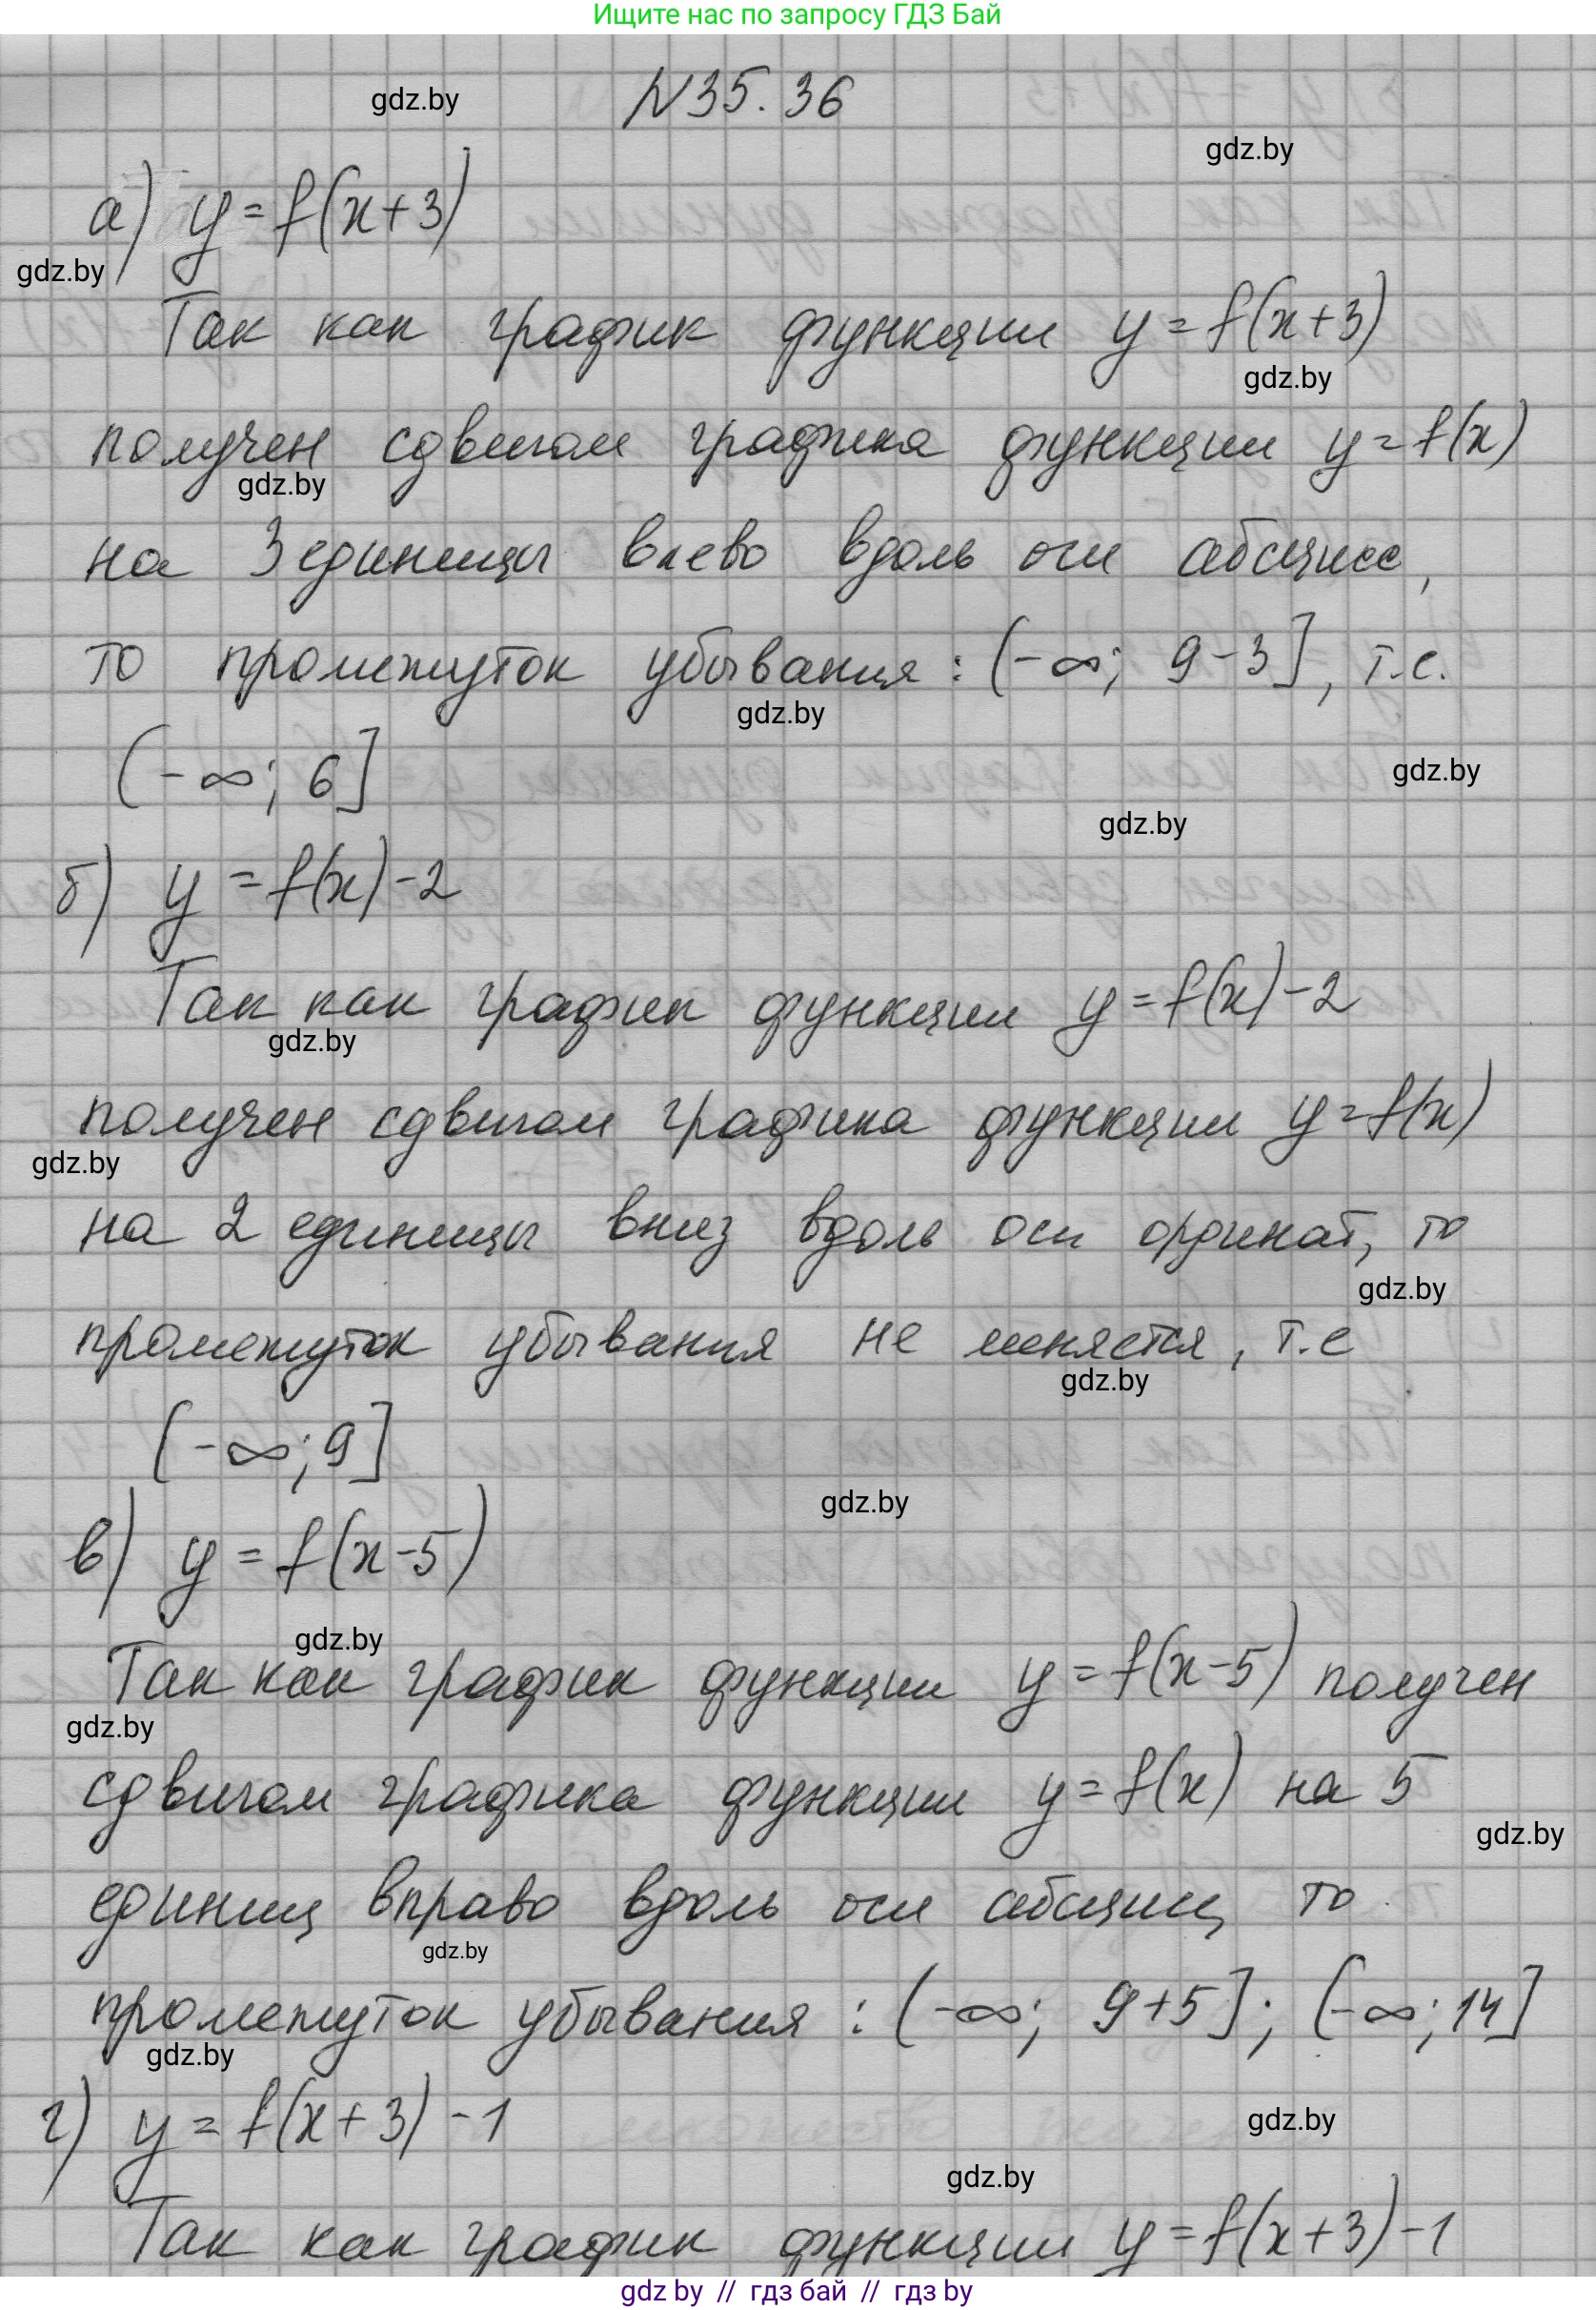 Ищите нас по запросу ГДЗ Бай
gdz.by
N35.36
gdz.by
а) y=f(x+3)
gdz.by
Так как график функции y=f(x+3)
gdz.by
получен сдвигом графика функции y=f(x)
gdz.by
на 3 единицы влево вдоль оси абсцисс,
то промежуток убывания: (-∞; 9-3], т.е.
gdz.by
(-∞; 6]
gdz.by
gdz.by
б) y=f(x)-2
Так как график функции y=f(x)-2
gdz.by
получен сдвигом графика функции y=f(x)
gdz.by
на 2 единицы вниз вдоль оси ординат, то
gdz.by
промежуток убывания не меняется, т.е
gdz.by
(-∞; 9]
gdz.by
в) y=f(x-5)
gdz.by
Так как график функции y=f(x-5) получен
gdz.by
сдвигом графика функции y=f(x) на 5
gdz.by
единиц вправо вдоль оси абсцисс, то
gdz.by
промежуток убывания: (-∞; 9+5]; (-∞; 14]
gdz.by
г) y=f(x+3)-1
gdz.by
gdz.by
Так как график функции y=f(x+3)-1
gdz by // гдз бай // гдз by